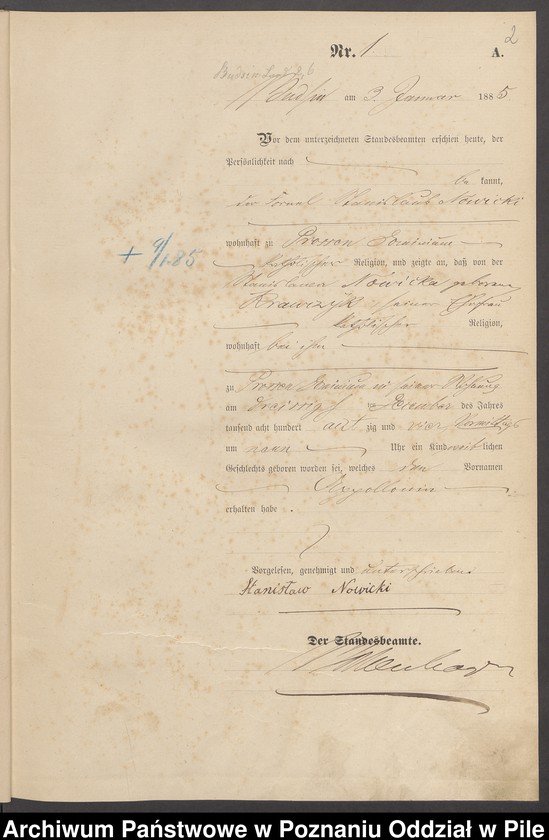 2
Nr. 1 A.
Budsin am 3. Januar 1885
Vor dem unterzeichneten Standesbeamten erschien heute, der
Persönlichkeit nach
be kannt,
der Fornal Stanislaus Nowicki
wohnhaft zu Prosson Dominium
+ 9/1.85
katholischer Religion, und zeigte an, daß von der
Nowicka geborene
Krawczyk, seiner Ehefrau
katholischer Religion,
wohnhaft bei ihm
zu Prosson Dominium in seiner Wohnung
am dreißigsten Dezember des Jahres
tausend acht hundert acht zig und vier Vormittags
um neun Uhr ein Kind weib lichen
Geschlechts geboren worden sei, welches den Vornamen
erhalten habe .
Vorgelesen, genehmigt und unterschrieben
Stanisław Nowicki
Der Standesbeamte.
Archiwum Państwowe w Poznaniu Oddział w Pile